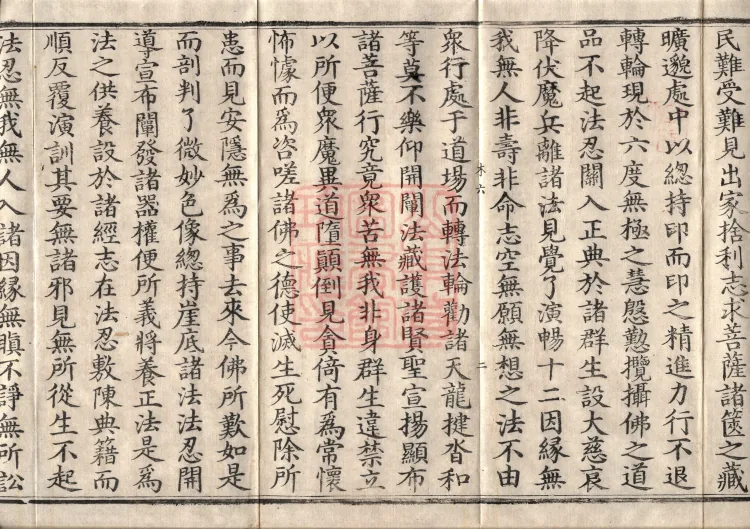 民難受難見出家捨利志求菩薩諸篋之藏
曠邈處中以緫持印而印之精進力行不退
轉輪現於六度無極之慧慇懃攬攝佛之道
品不起法忍關入正典於諸群生設大慈哀
降伏魔兵離諸法見覺了演暢十二因緣無
我無人非壽非命志空無願無想之法不由
木六
二
衆行處于道場而轉法輪勸諸天龍揵沓和
等莫不樂仰開闡法藏護諸賢聖宣揚顯布
諸菩薩行究竟衆苦無我非身群生違禁立
以所便衆魔異道墮顛倒見貪倚有爲常懷
怖懅而爲咨嗟諸佛之德使滅生死慰除所
患而見安隱無爲之事去來今佛所歎如是
而剖判了微妙色像緫持崖底諸法法忍開
導宣布闡發諸器權便所義將養正法是爲
法之供養設於諸經志在法忍敷陳典籍而
順反覆演訓其要無諸邪見無所從生不起
法忍無我無人入諸因緣無瞋不諍無所訟